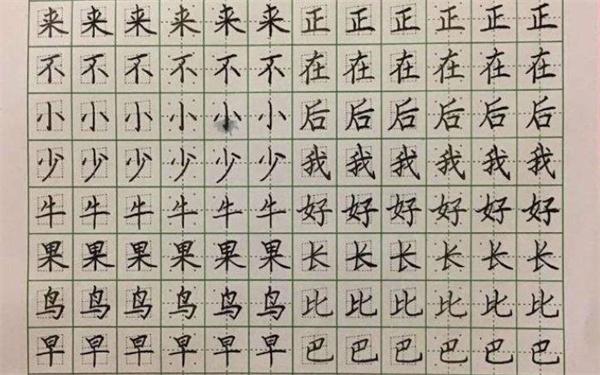 来来来来来来正正正正正正
不不不不不不在在在在在在
小小小小小小后后后后后后
少少少少少少我我我我我我
牛牛牛牛牛牛好好好好好好
果果果果果果长长长长长长
鸟鸟鸟鸟鸟鸟比比比比比比
早早早早早早巴巴巴巴巴巴